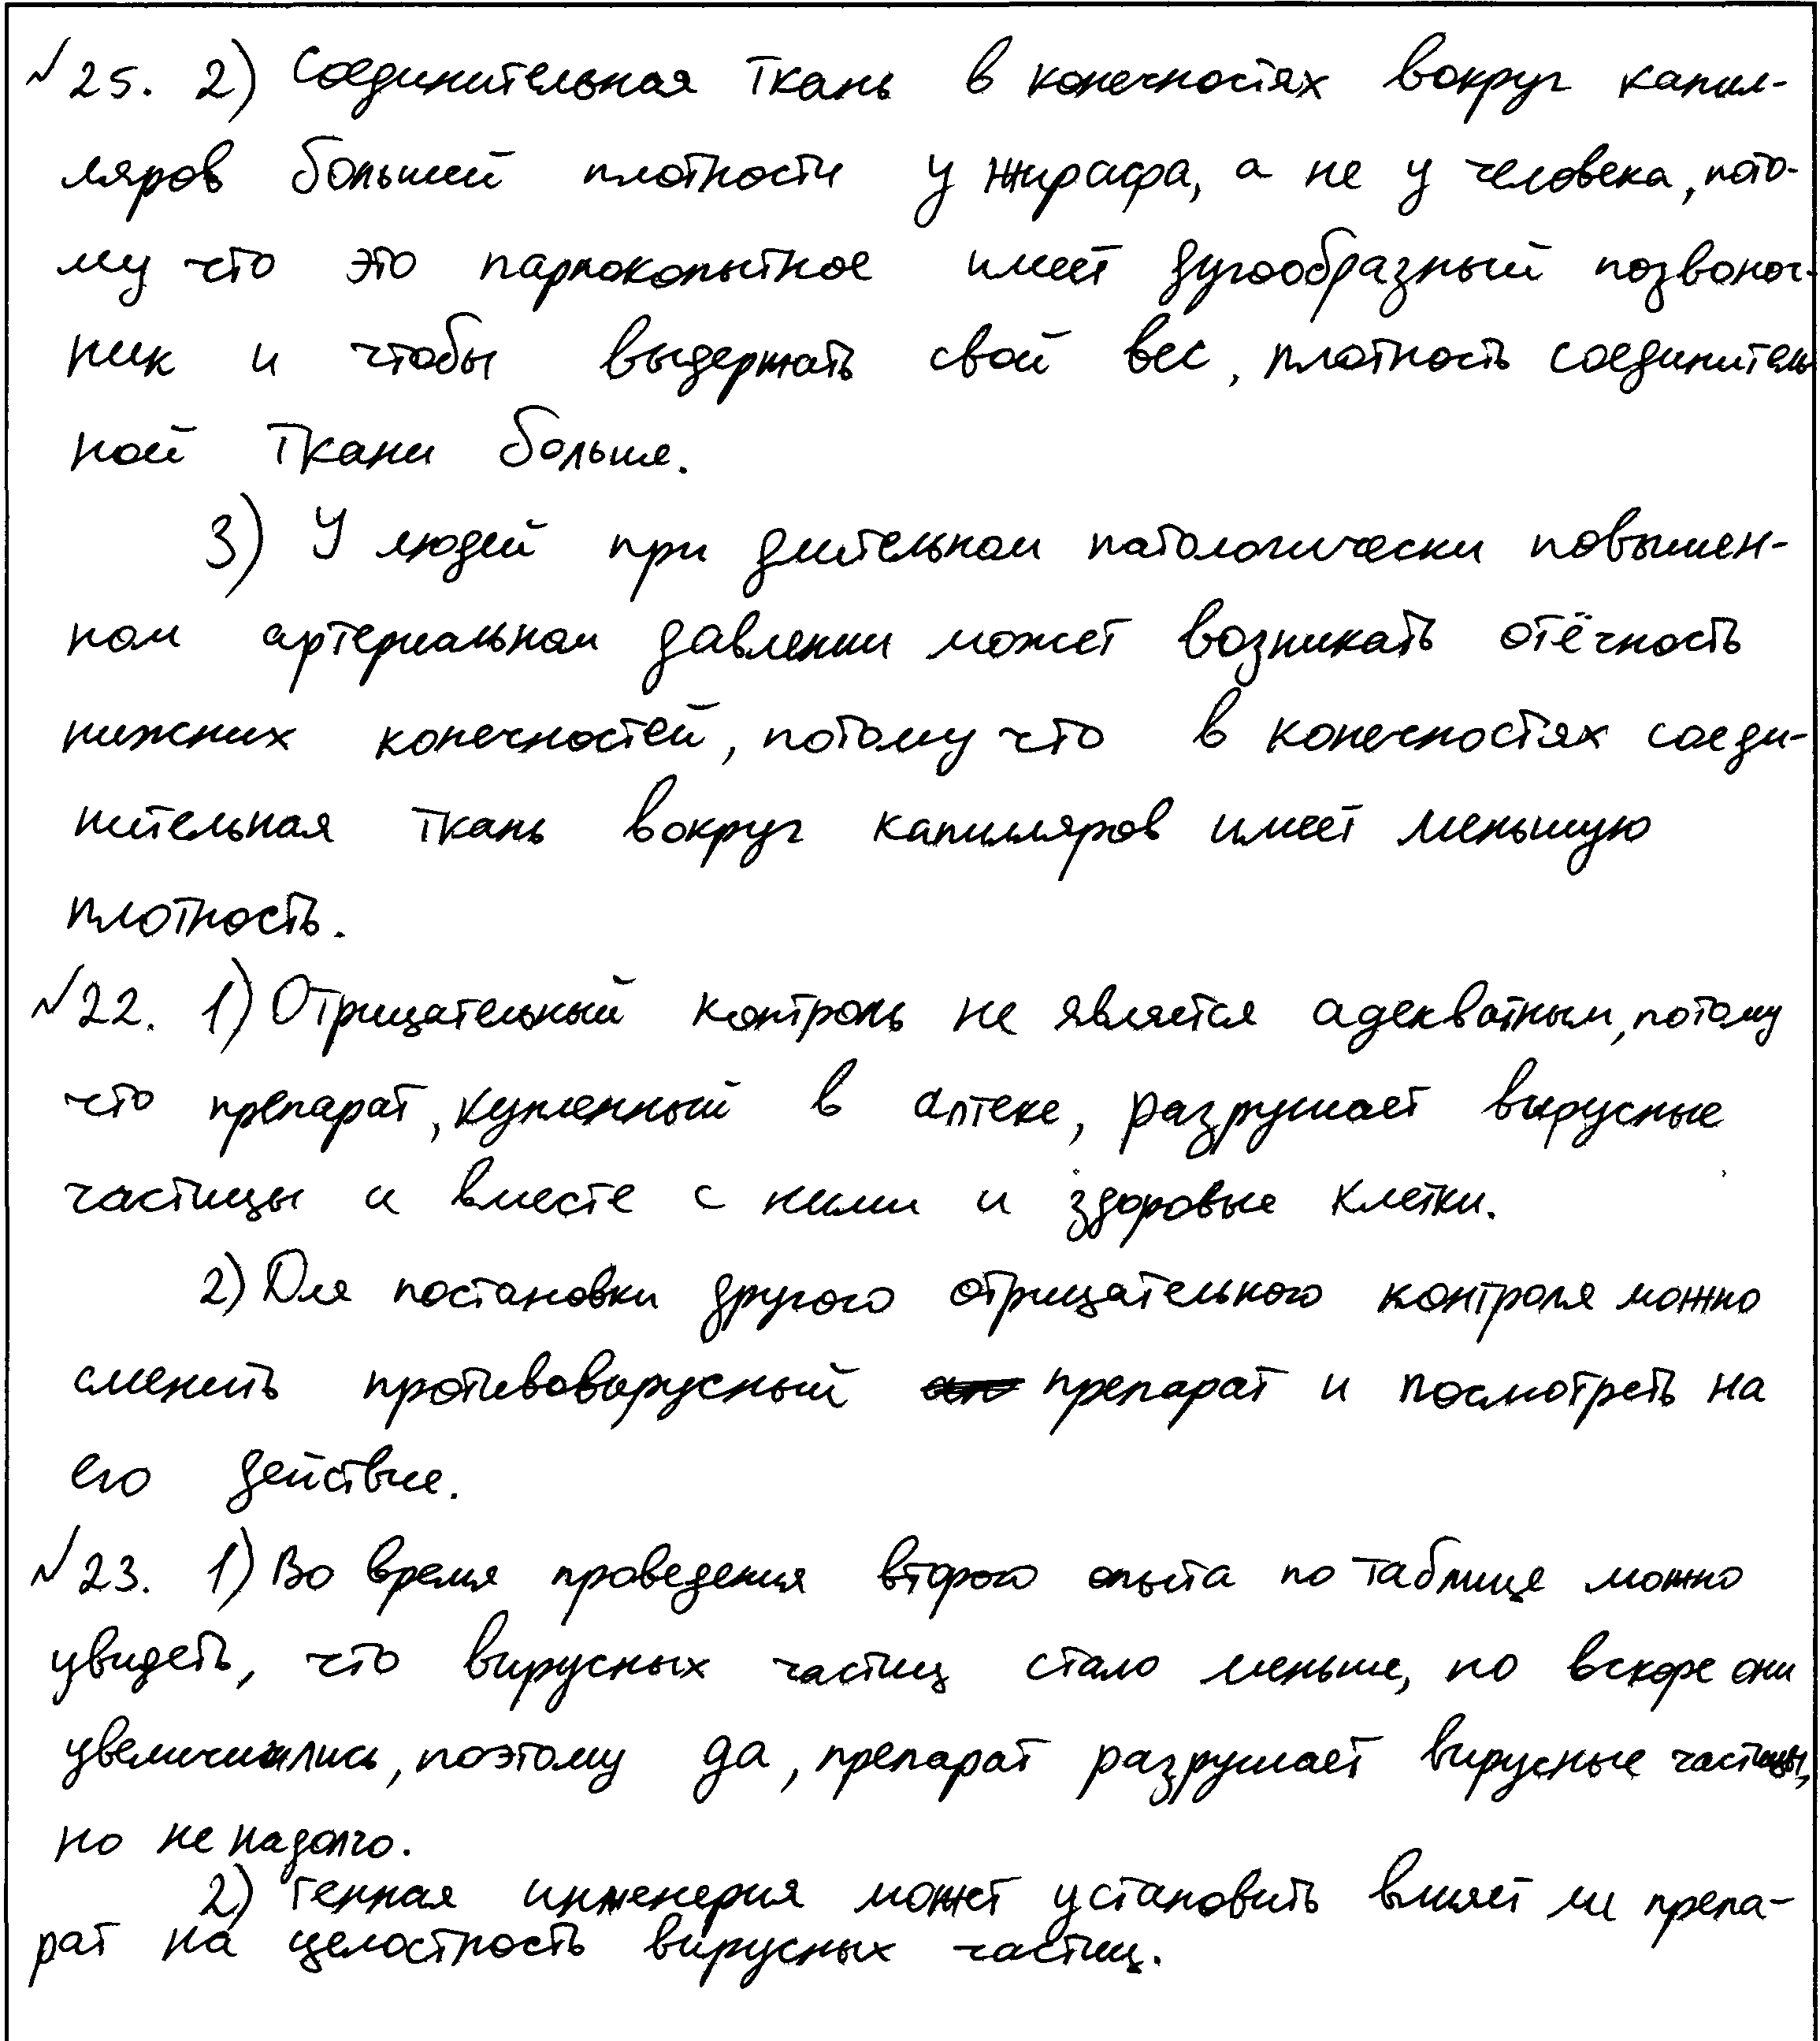 №25. 2) Соединительная ткань в конечностях вокруг капил-
ляров большей плотности у жирафа, а не у человека, пото-
му что это парнокопытное имеет дугообразный позвоноч-
ник и чтобы выдержать свой вес, плотность соединитель
ной ткани больше.
3) У людей при длительном патологически повышен-
ном артериальном давлении может возникать отёчность
нижних конечностей, потому что в конечностях соеди-
нительная ткань вокруг капилляров имеет меньшую
плотность.
№22. 1) Отрицательный контроль не является адекватным, потому
что препарат, купленный в аптеке, разрушает вирусные
частицы и вместе с ними и здоровые клетки.
2) Для постановки другого отрицательного контроля можно
сменить противовирусный препарат и посмотреть на
его действие.
№23. 1) Во время проведения второго опыта по таблице можно
увидеть, что вирусных частиц стало меньше, но вскоре они
увеличились, поэтому да, препарат разрушает вирусные частицы,
но не надолго.
2) Генная инженерия может установить влияет ли препа-
рат на целостность вирусных частиц.